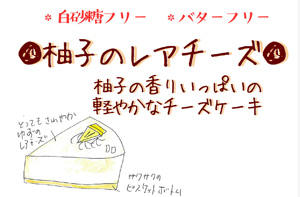 *白砂糖フリー *バターフリー
柚子のレアチーズ
柚子の香りいっぱいの
軽やかなチーズケーキ
とってもさわやか
ゆずの
レアチーズ
サクサクの
ビスケットボトム